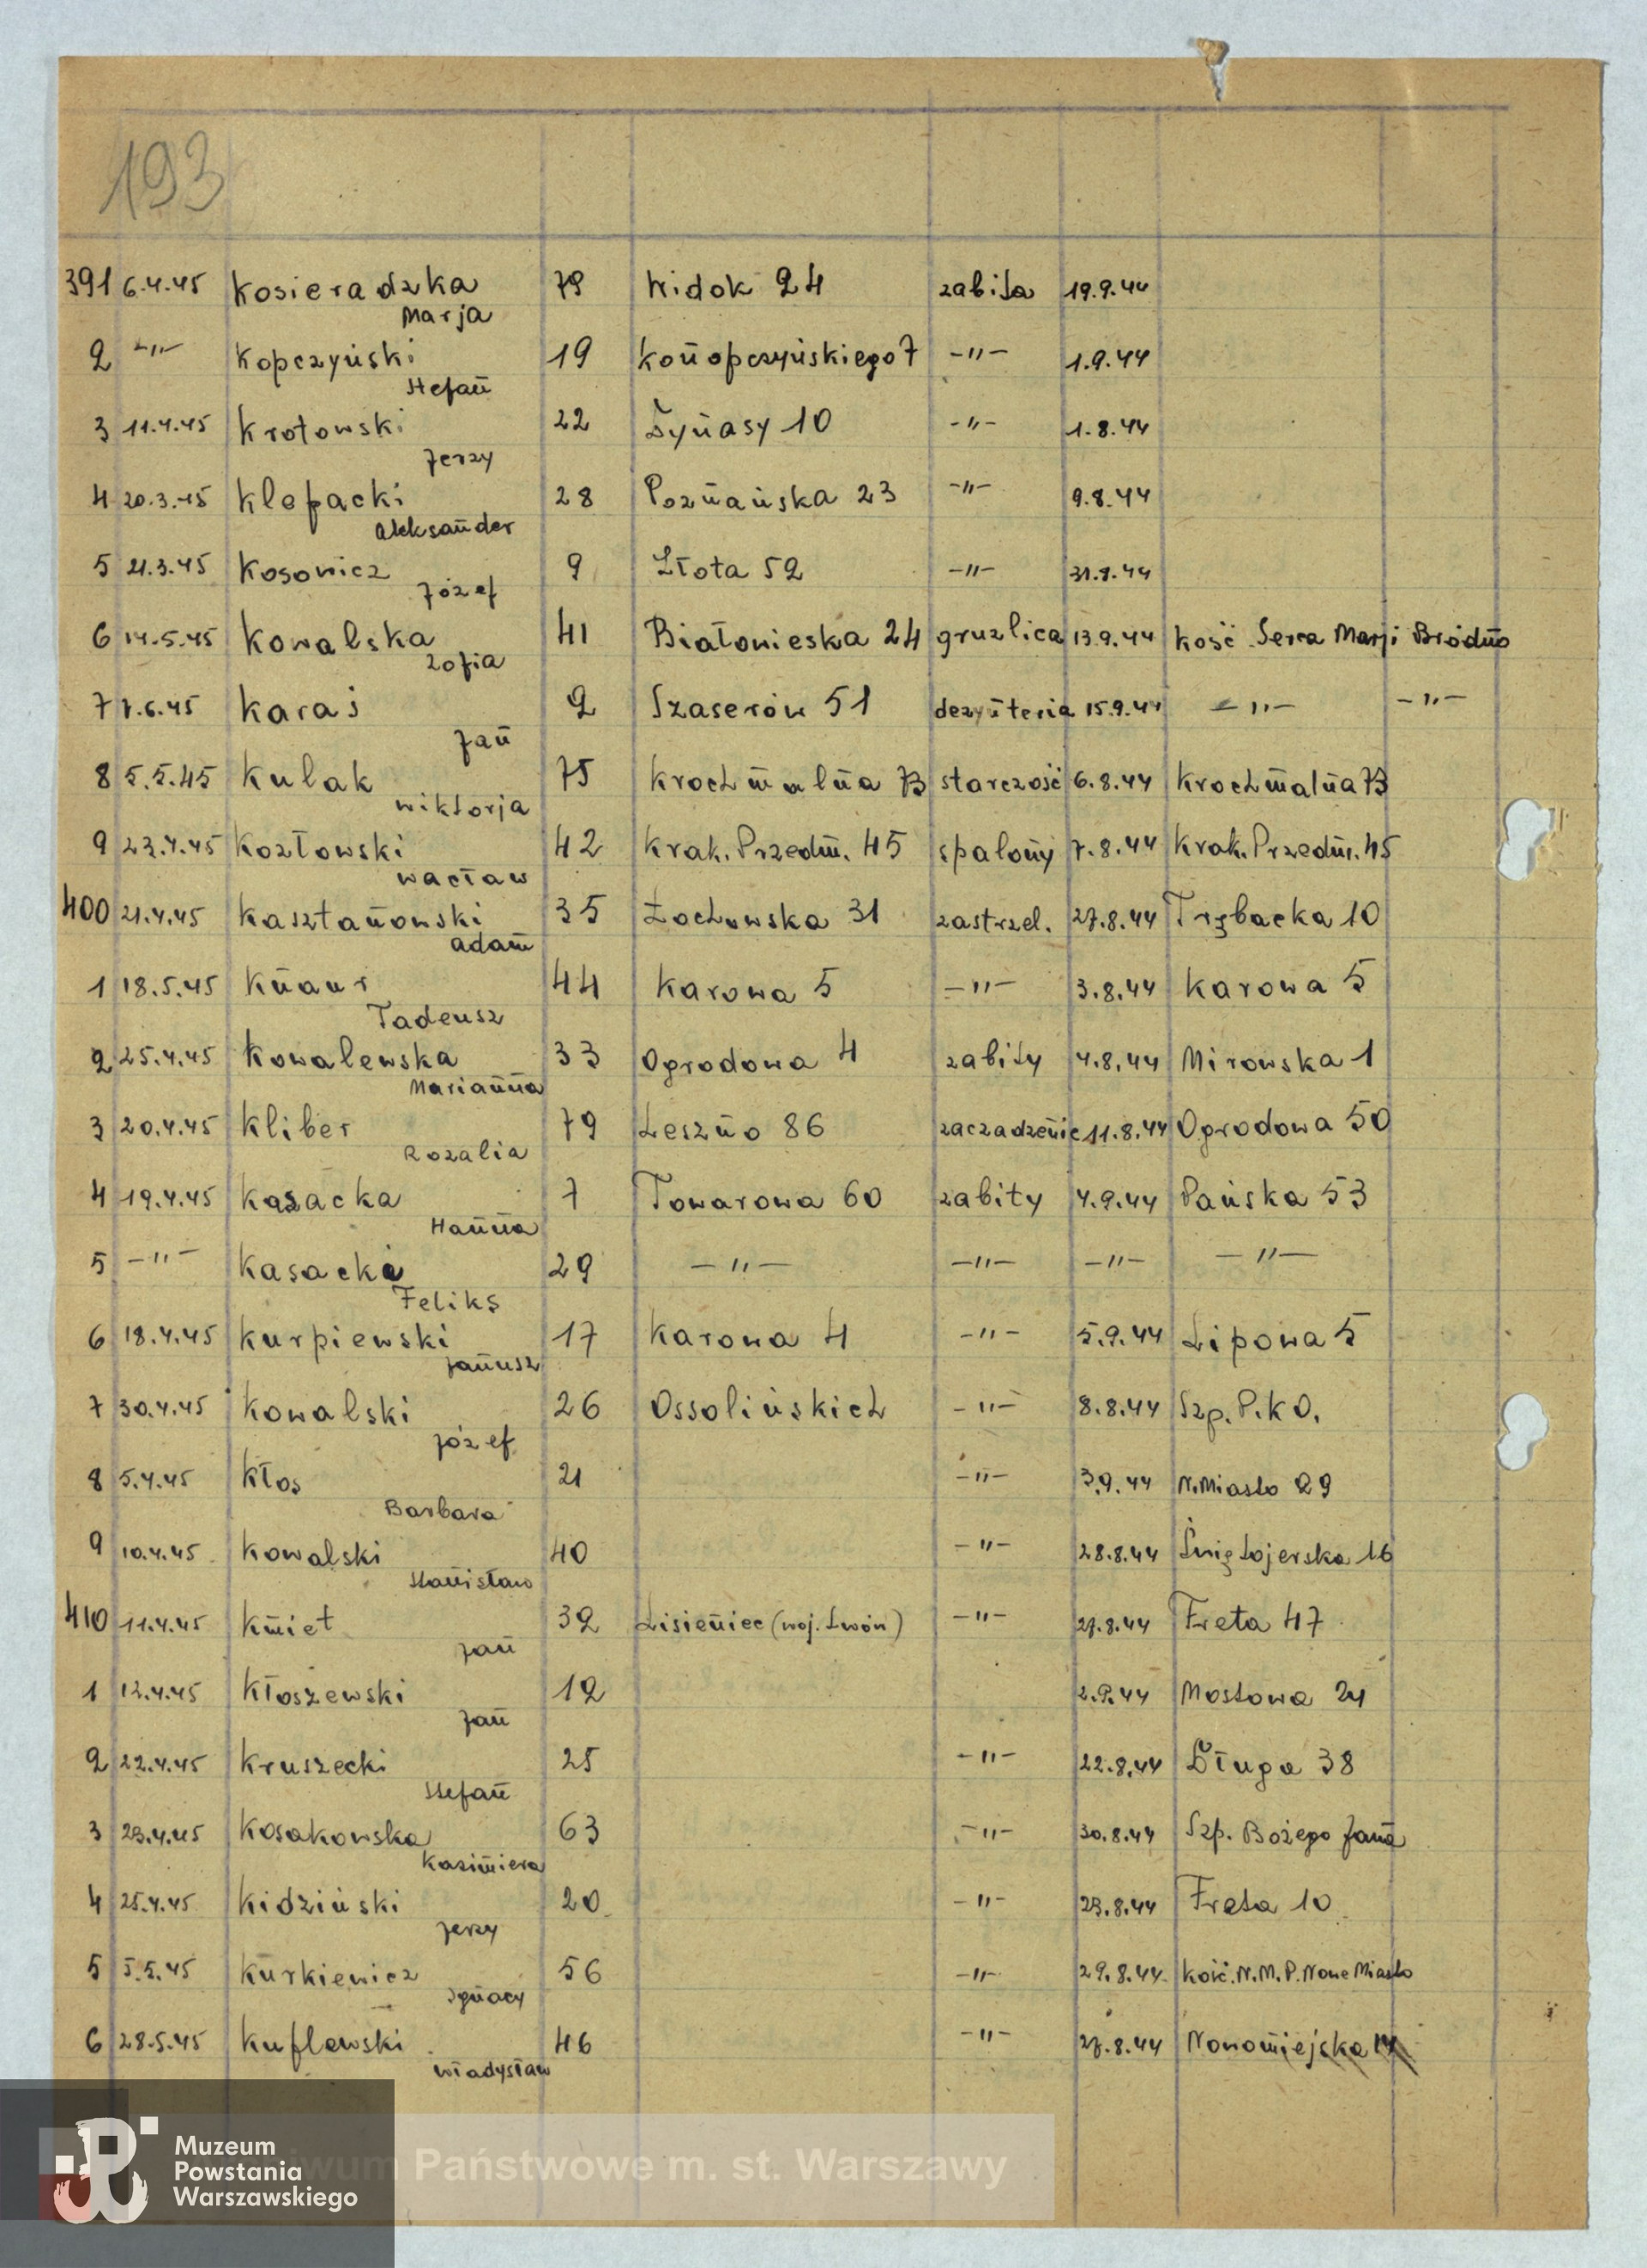 193
391 6.4.45 Kosieradzka 79 Widok 24 zabita 19.9.44
Marja
2 -"- Kopczyński 19 Konopczyńskiego 7 -"- 1.9.44
Stefan
3 11.4.45 Krotowski 22 Dynasy 10 -"- 1.8.44
Jerzy
4 20.3.45 Klepacki 28 Poznańska 23 -"- 9.8.44
Aleksander
5 21.3.45 Kosowicz 9 Złota 52 -"- 31.8.44
Józef
6 14.5.45 Kowalska 41 Białowieska 24 gruzlica 13.9.44 Kość Serca Marji Bródno
Zofia
7 1.6.45 Karaś 2 Szaserów 51 dezynteria 15.9.44 -"- -"-
Jan
8 5.5.45 Kulak 75 Krochmalna 73 starczość 6.8.44 Krochmalna 73
Wiktorja
9 23.4.45 Kozłowski 42 Krak. Przedm. 45 spalony 7.8.44 Krak. Przedm. 45
Wacław
400 21.4.45 Kasztanowski 35 Żochowska 31 zastrzel. 27.8.44 Trębacka 10
Adam
1 18.5.45 Knaur 44 Karowa 5 -"- 3.8.44 Karowa 5
Tadeusz
2 25.4.45 Kowalewska 33 Ogrodowa 4 zabity 4.8.44 Mirowska 1
Marianna
3 20.4.45 Kliber 79 Leszno 86 zaczadzenie 11.8.44 Ogrodowa 50
Rozalia
4 19.4.45 Kasacka 7 Towarowa 60 zabity 4.9.44 Pańska 53
Hanna
5 -"- Kasacki 29 -"- -"- -"- -"-
Feliks
6 18.4.45 Kurpiewski 17 Karowa 4 -"- 5.9.44 Lipowa 5
Janusz
7 30.4.45 Kowalski 26 Ossolińskich -"- 8.8.44 Szp. P.K.O.
Józef
8 5.4.45 Kłos 21 -"- 3.9.44 N. Miasto 29
Barbara
9 10.4.45 Kowalski 40 -"- 28.8.44 Świętojerska 16
Stanisław
410 11.4.45 Kmiet 32 Lisieniec (woj. Lwów) -"- 27.8.44 Freta 47
Jan
1 12.4.45 Kłoszewski 12 2.9.44 Mostowa 24
Jan
2 22.4.45 Kruszecki 25 -"- 22.8.44 Długa 38
Stefan
3 23.4.45 Kosakowska 63 -"- 30.8.44 Szp. Bożego Jana
Kazimiera
4 25.4.45 Kidziński 20 -"- 23.8.44 Freta 10
Jerzy
5 5.5.45 Kurkiewicz 56 -"- 29.8.44 Kość. N.M.P. Nowe Miasto
Ignacy
6 28.5.45 Kuflewski 46 -"- 27.8.44 Nowomiejska
Władysław
Muzeum
Powstania
Warszawskiego
wum Państwowe m. st. Warszawy